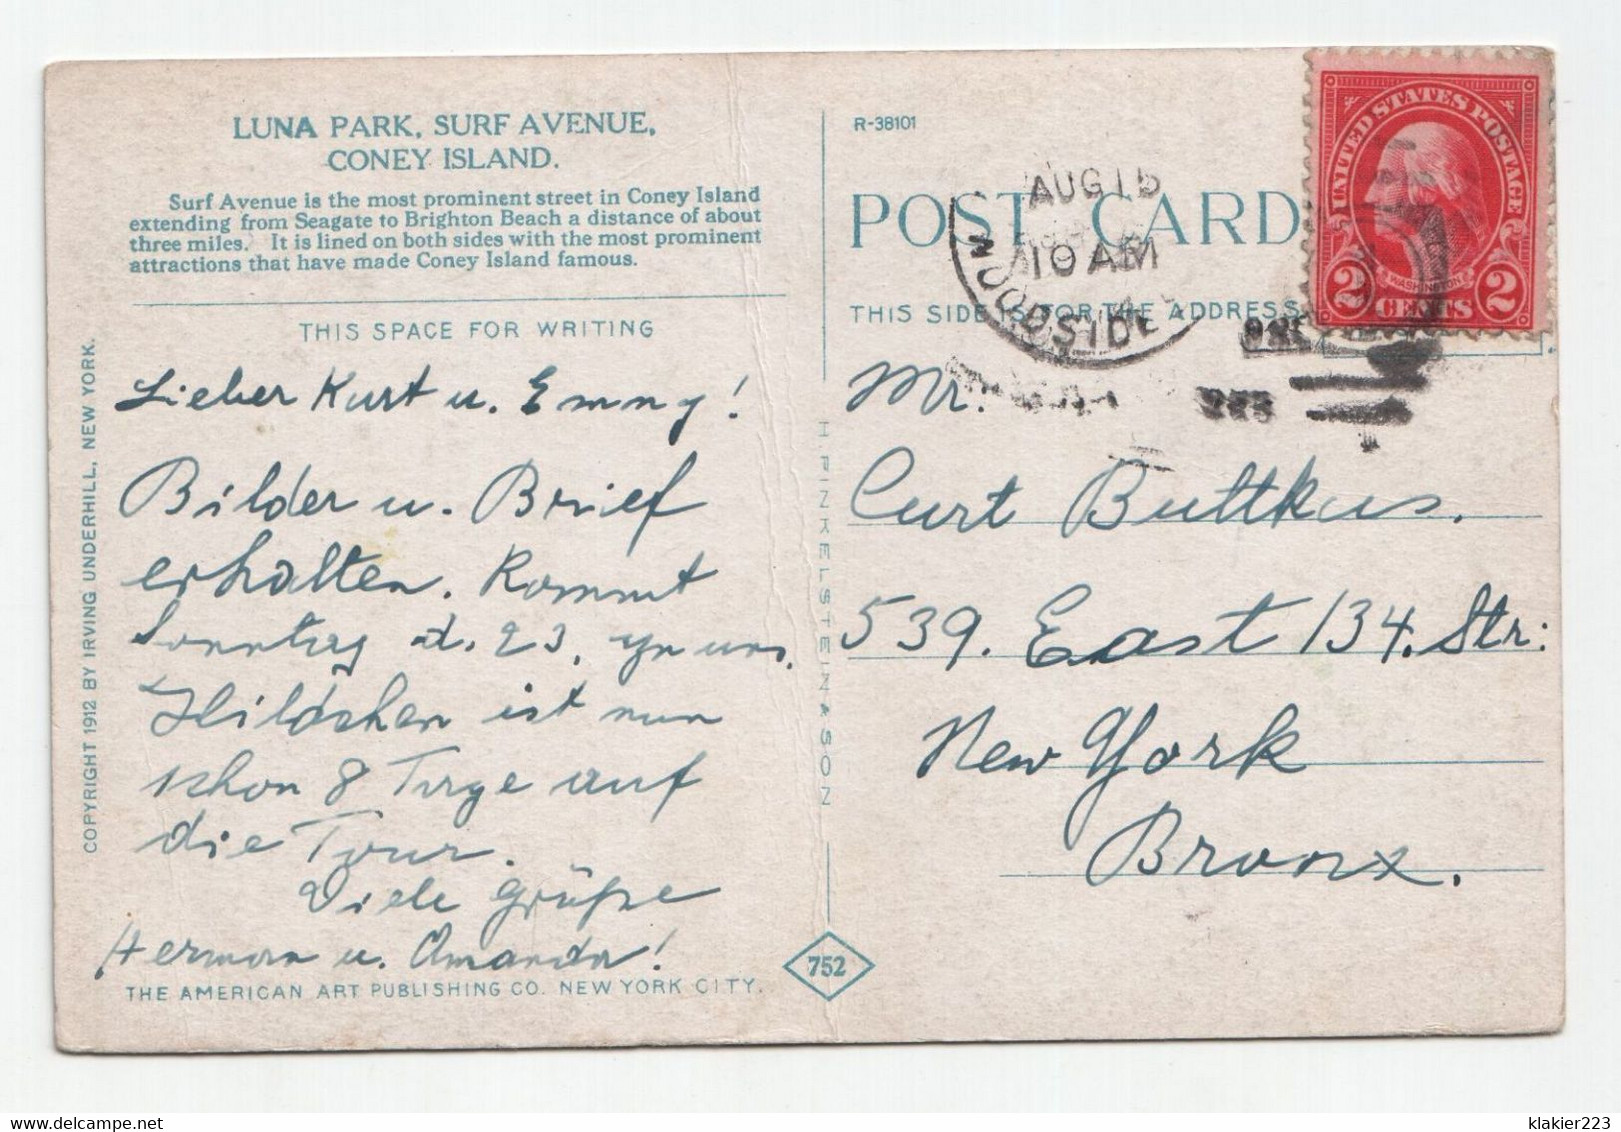 LUNA PARK, SURF AVENUE,
CONEY ISLAND.
Surf Avenue is the most prominent street in Coney Island
extending from Seagate to Brighton Beach a distance of about
three miles. It is lined on both sides with the most prominent
attractions that have made Coney Island famous.
THIS SPACE FOR WRITING
Lieber Kurt u. Emmy!
Bilder u. Brief
erhalten. Kommt
Sonntag d. 23. zu uns.
Hildchen ist nun
schon 8 Tage auf
die Tour.
Viele Grüße
Herman u. Amanda!
THE AMERICAN ART PUBLISHING CO. NEW YORK CITY.
COPYRIGHT 1912 BY IRVING UNDERHILL, NEW YORK.
H. FINKELSTEIN & SON
752
R-38101
POST CARD
THIS SIDE IS FOR THE ADDRESS
AUG 15
10 AM
WOODSIDE
UNITED STATES POSTAGE
WASHINGTON
2 CENTS 2
Mr.
Curt Buttkus.
539. East 134. Str:
New York
Bronx.
klakier223